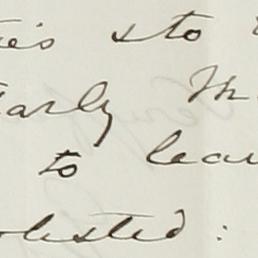 sto
early M
to leav
olested :